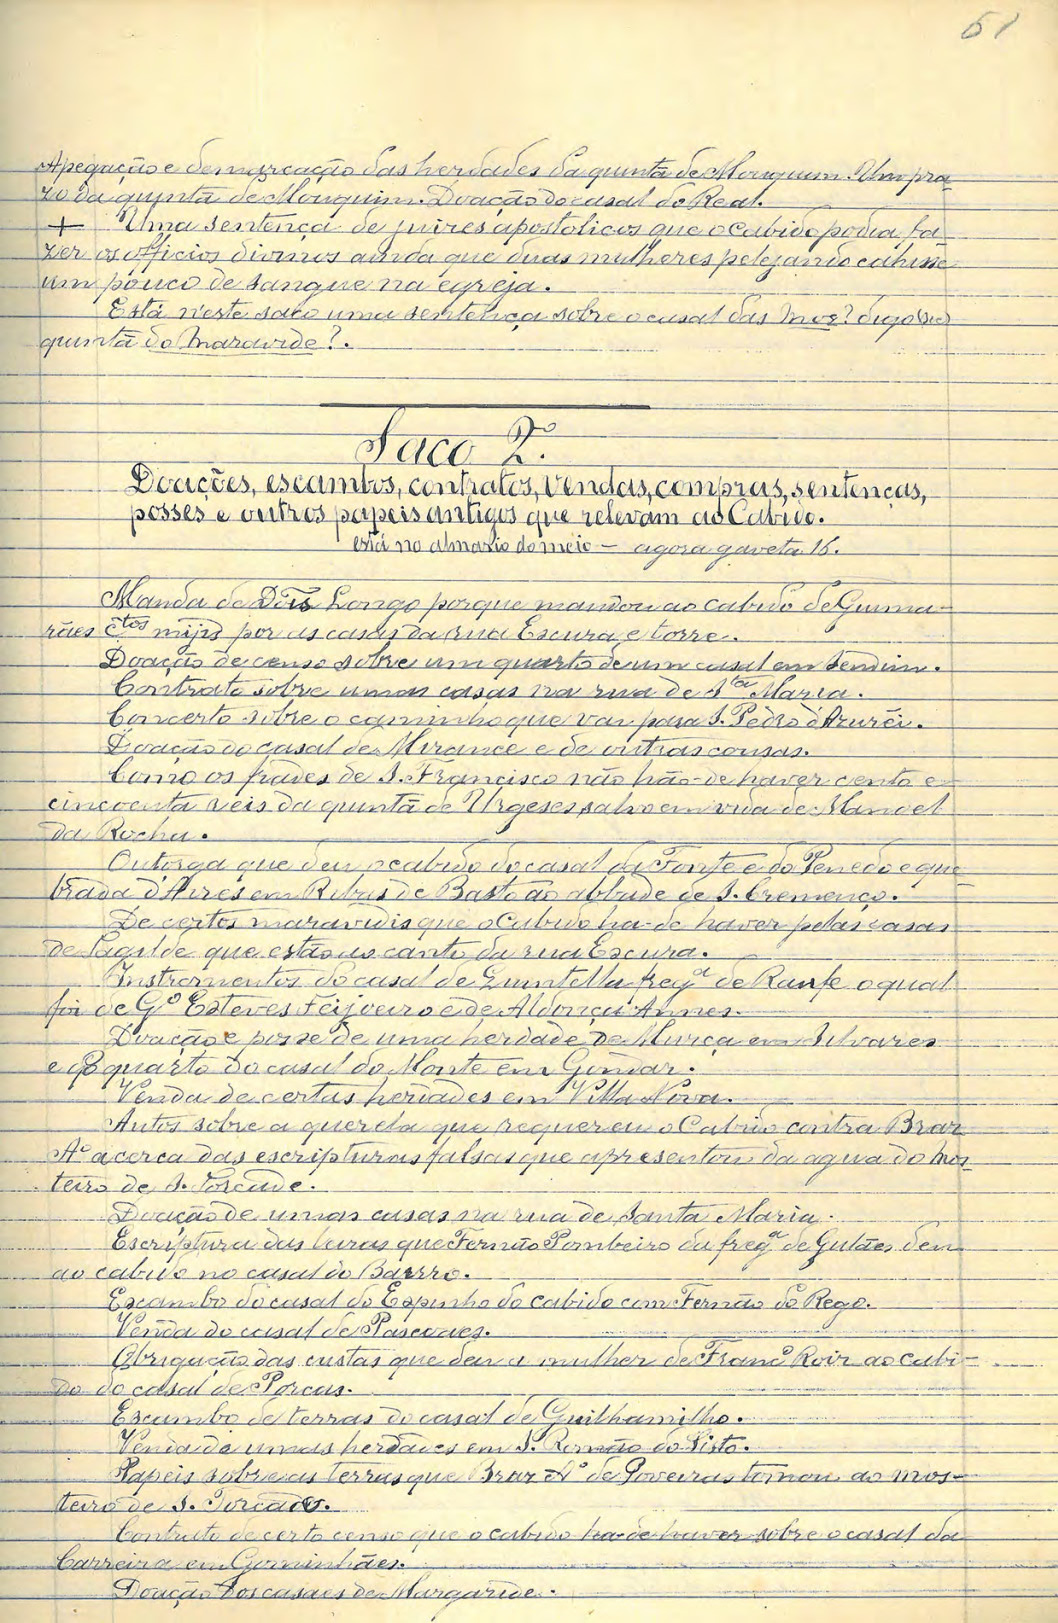 51
Apegação e demarcação das herdades da quintã de Mouquim. Um pra-
zo da quintã de Mouquim. Doação do casal do Real.
+ Uma sentença de juizes apostolicos que o Cabido podia fa-
zer os officios divinos ainda que duas mulheres pelejando cahisse
um pouco de sangue na egreja.
Está n'este saco uma sentença sobre o casal das Moz? digo (sic)
quintã do Maravide?.
Saco 2.º
Doações, escambos, contratos, vendas, compras, sentenças,
posses e outros papeis antigos que relevam ao Cabido.
está no almario do meio — agora gaveta 16.
Manda de Dinis Longo porque mandou ao cabido de Guima-
rães c.tos mijs por as casas da rua Escura e torre.
Doação de censo sobre um quarto de um casal em Sendim.
Contrato sobre umas casas na rua de S.ta Maria.
Concerto sobre o caminho que vai para S. Pedro d'Azurei.
Doação do casal de Mirance e de outras cousas.
Como os frades de S. Francisco não hão-de haver cento e
cincoenta reis da quintã de Urgeses, salvo em vida de Manoel
da Rocha.
Outorga que deu o cabido do casal da Fonte e do Penedo e que-
brada d'Aires em Ribas de Basto ao abbade de S. Cremenço.
De certos maravidis que o Cabido ha-de haver pelas casas
de Lagilde que estão ao canto da rua Escura.
Instromentos do casal de Quintella freg.a de Ranfe o qual
foi de G.º Esteves Feijoeiro e de Aldonça Annes.
Doação e posse de uma herdade de Murça em Silvares
e do quarto do casal do Monte em Gondar.
Venda de certas herdades em Villa Nova.
Autos sobre a querela que requereu o Cabido contra Braz
A.º acerca das escripturas falsas que apresentou da agua do mos-
teiro de S. Torcade.
Doação de umas casas na rua de Santa Maria.
Escriptura das leiras que Fernão Pombeiro da freg.a de Gulães deu
ao cabido no casal do Bairro.
Escambo do casal do Espinho do cabido com Fernão do Rego.
Venda do casal de Pascoaes.
Obrigação das custas que deu a mulher de Franc.º Roiz ao cabi-
do do casal de Porcas.
Escambo de terras do casal de Guilhamilho.
Venda de umas herdades em S. Romão do Sisto.
Papeis sobre as terras que Braz A.º de Poveiras tomou ao mos-
teiro de S. Torcado.
Contrato de certo censo que o cabido ha-de haver sobre o casal da
Carreira em Gominhães.
Doação dos casaes de Margaride.